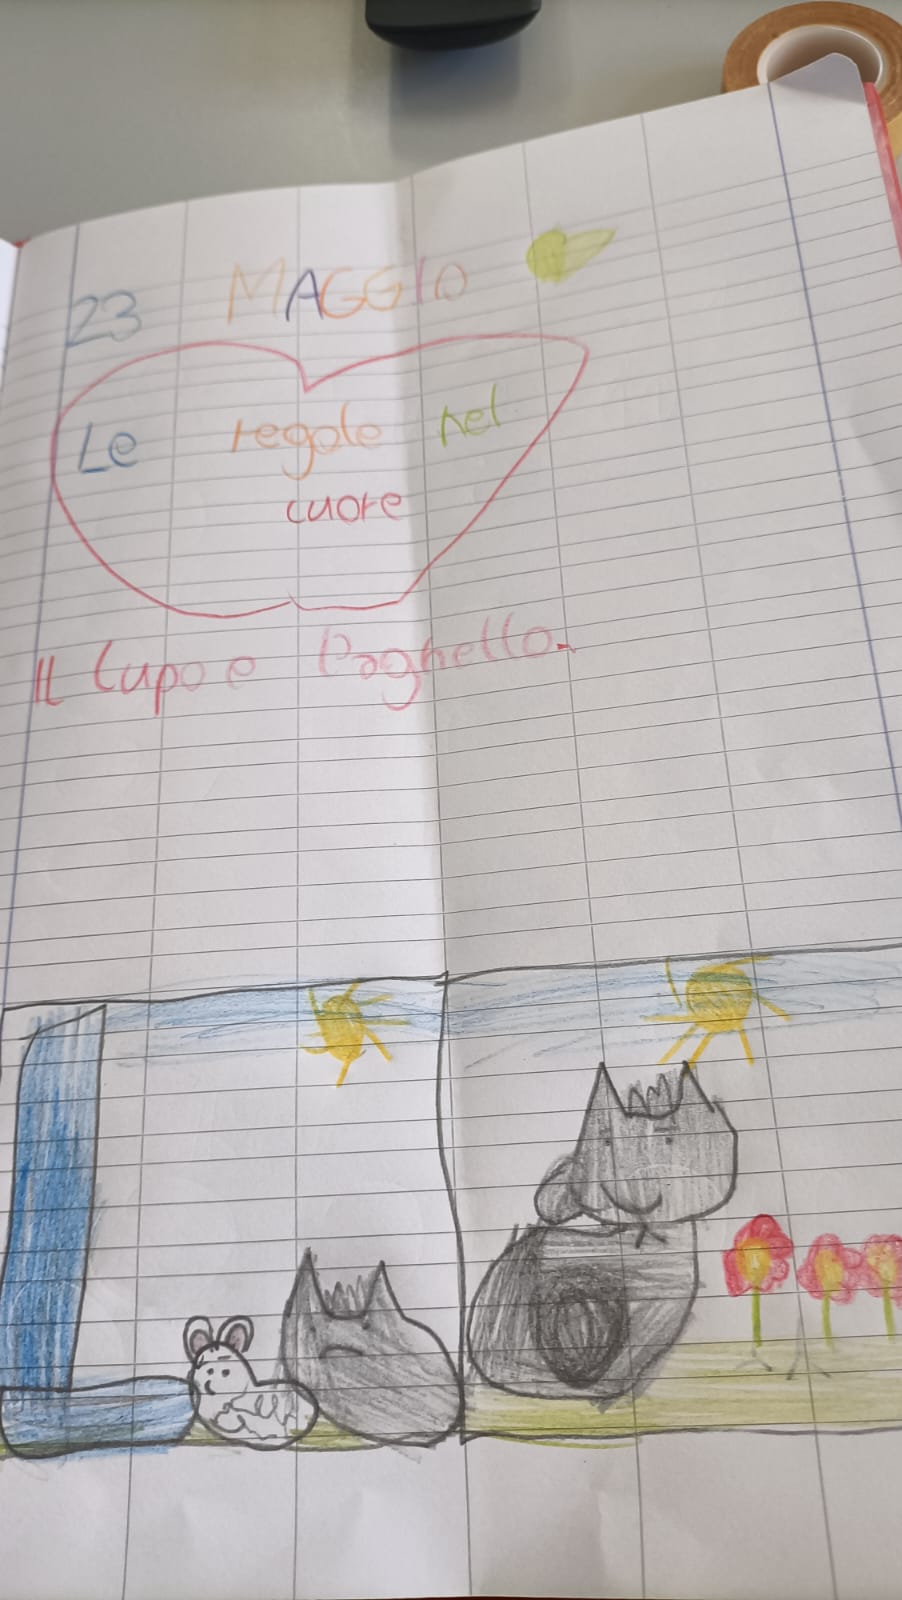 23 MAGGIO
Le regole nel
cuore
Il Lupo e l'agnello.